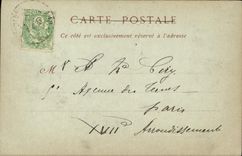 CARTE POSTALE
Ce côté est exclusivement réservé à l'adresse
Mr
Avenue des Ternes
Paris
XVIIe Arrondissement